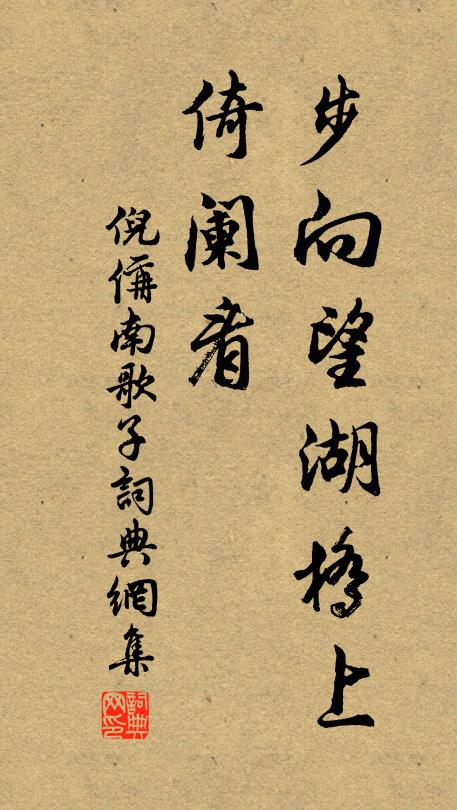 步向望湖橋上
倚闌看
倪偁南歌子詞典網集
詞典网印